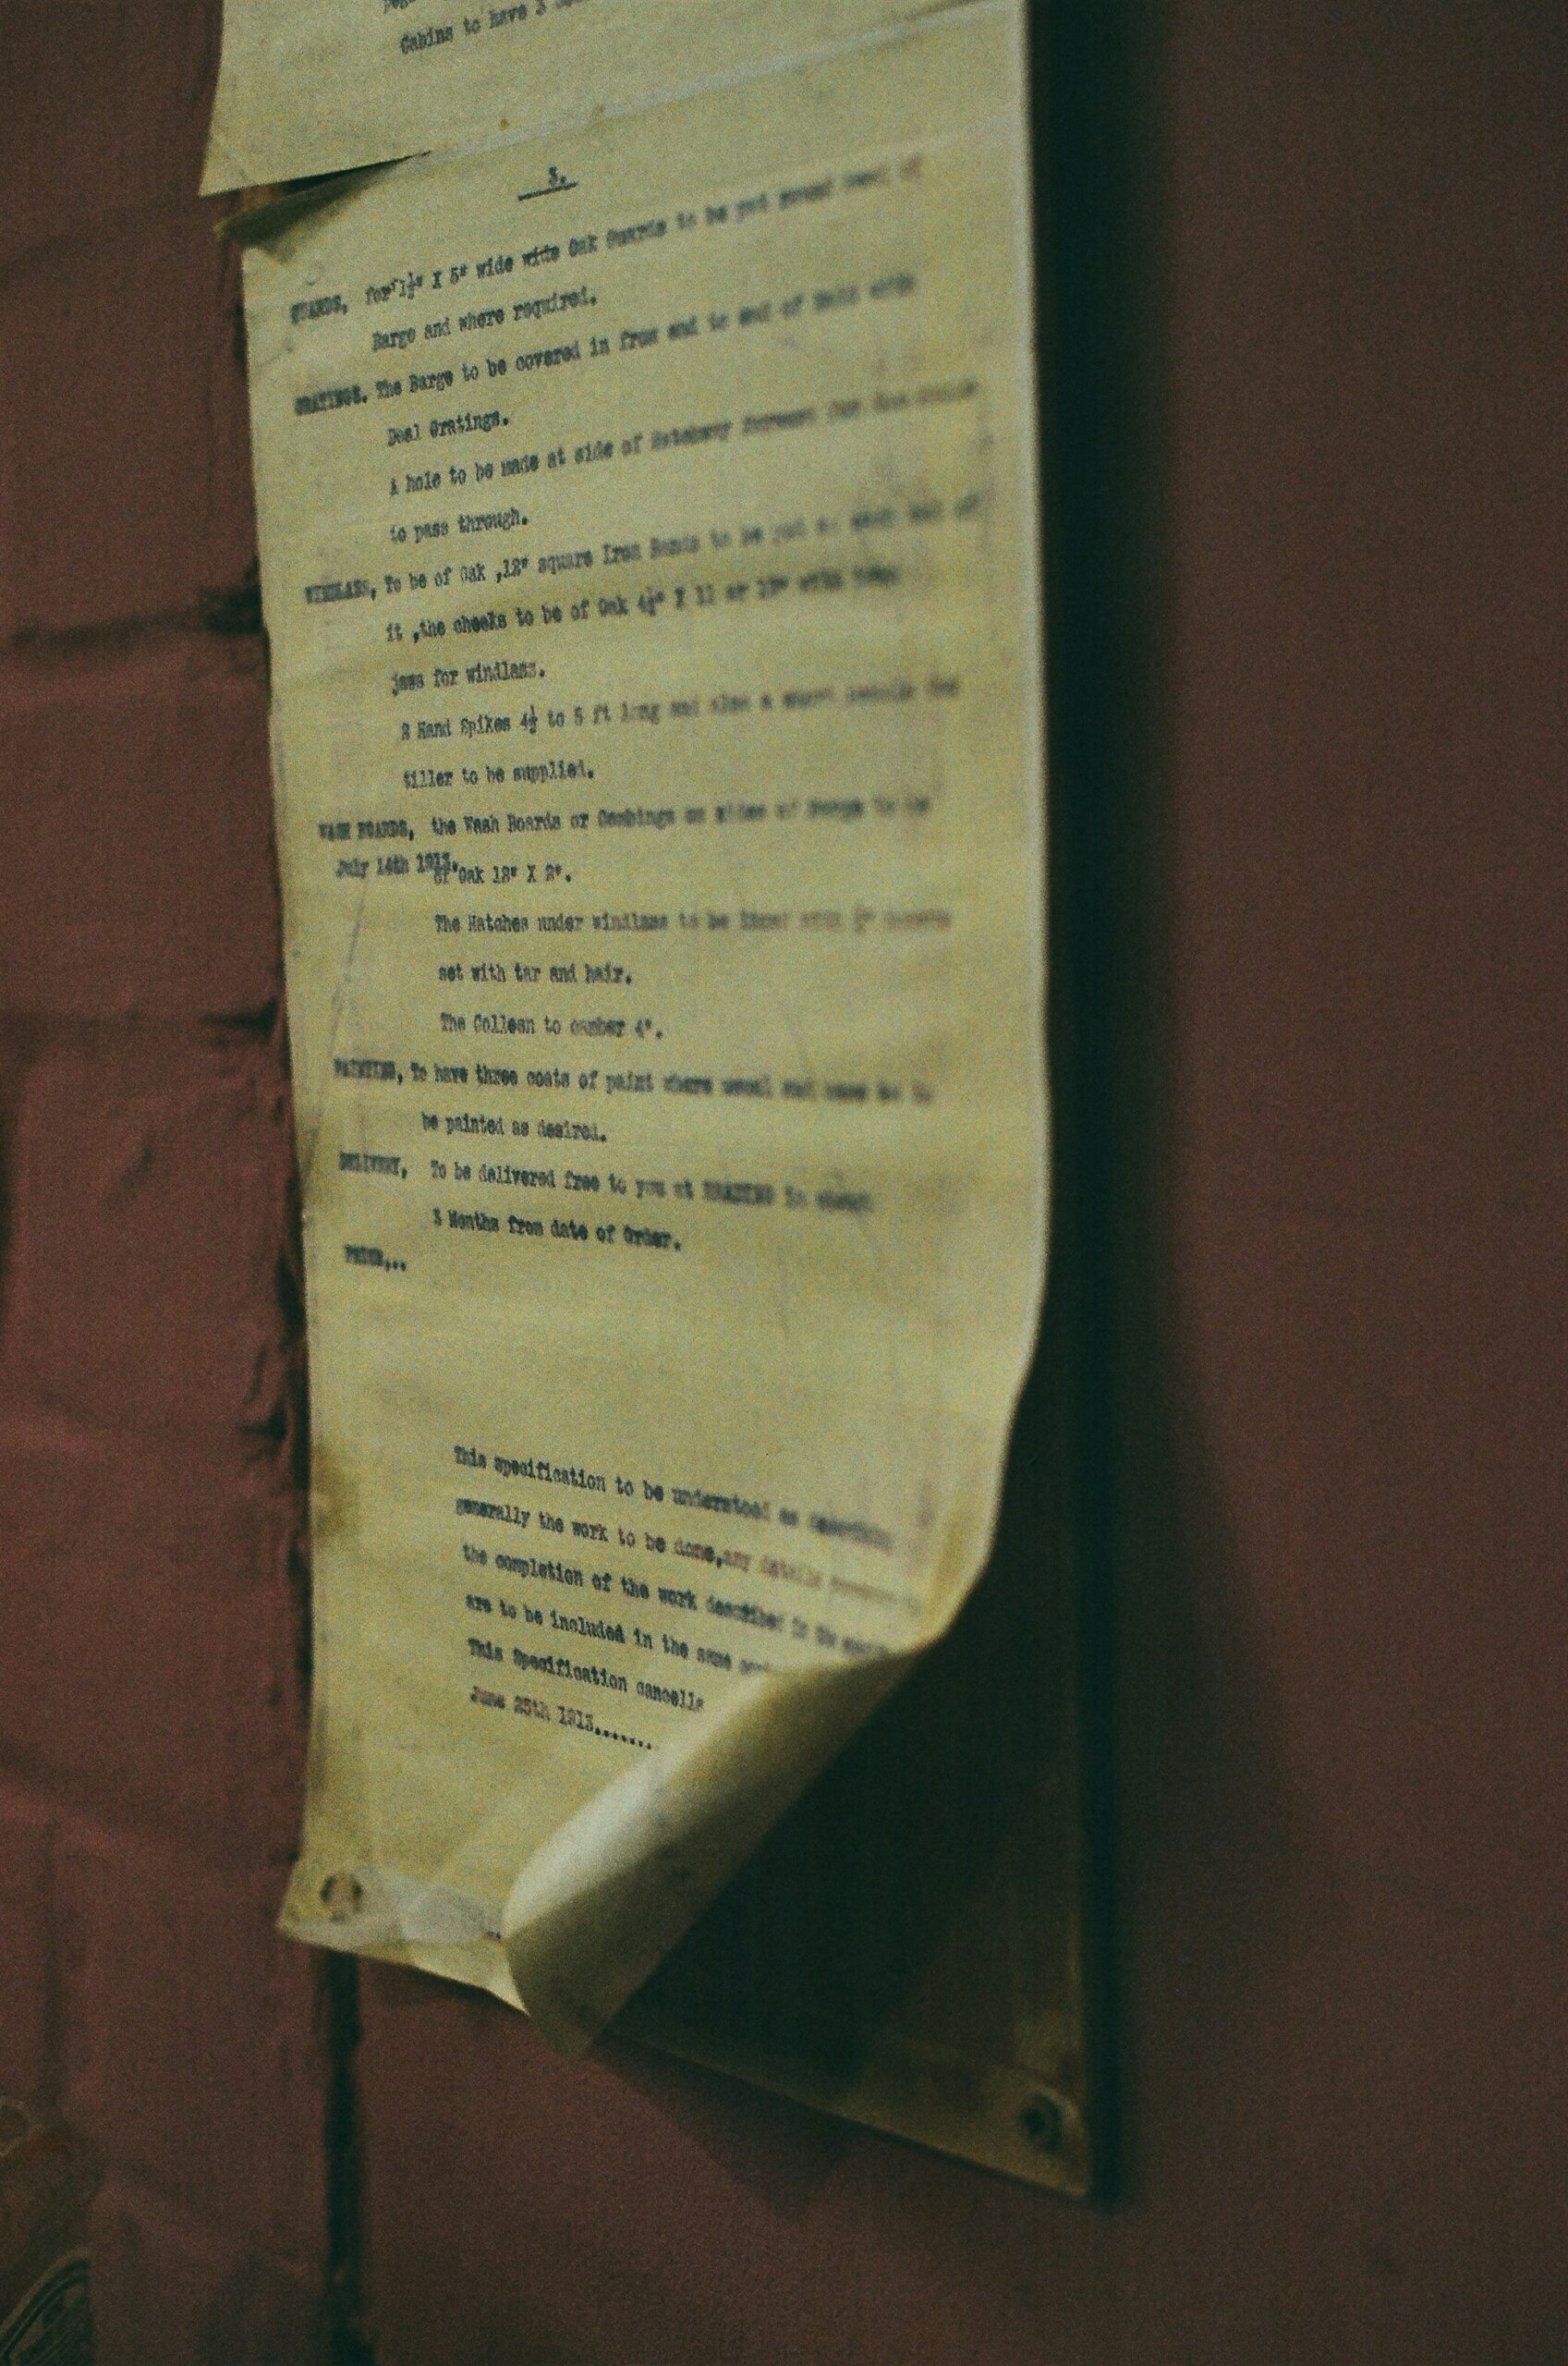 Cabins to have 3
3.
GUARDS, for 1½" X 5" wide wide Oak Guards to be put round head of
Barge and where required.
GRATINGS. The Barge to be covered in from end to end of Hold with
Deal Gratings.
A hole to be made at side of Hatchway forward for
to pass through.
WINDLASS, To be of Oak ,12" square Iron Bands to be put at each end of
it ,the cheeks to be of Oak 4½" X 11 or 12" with long
jaws for windlass.
2 Hand Spikes 4½ to 5 ft long and also a short handle for
tiller to be supplied.
WASH BOARDS, the Wash Boards or Combings on sides of Barge to be
July 14th 1913.
of Oak 12" X 2".
The Hatches under windlass to be lined with
set with tar and hair.
The Collean to camber 4".
PAINTING, To have three coats of paint where usual and name to
be painted as desired.
DELIVERY, To be delivered free to you at READING in about
3 Months from date of Order.
PRICE,..
This specification to be understood as describing
generally the work to be done,any details
the completion of the work described to be
are to be included in the same
This Specification cancells
June 25th 1913.......